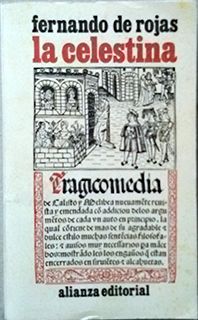 fernando de rojas
la celestina
Tragicomedia
de Calisto y Melibea nueuamēte reuis
ta y emendada cō addicion delos argu
mētos de cada vn auto en principio. la
qual cōtiene de mas de su agradable y
dulce estilo muchas sentēcias filosofa
les: y auisos muy necessarios pa māce
bos: mostrādo les los engaños q̄ estan
encerrados en siruiētes y alcahuetas.
alianza editorial